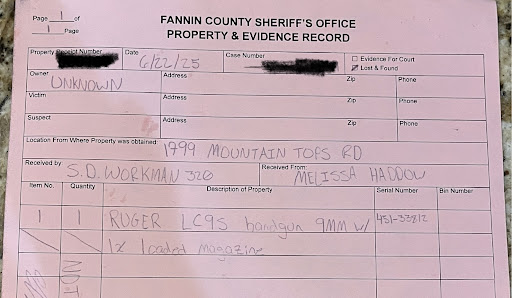 Page 1 of
1 Page
FANNIN COUNTY SHERIFF'S OFFICE
PROPERTY & EVIDENCE RECORD
Property Receipt Number Date 6/22/25 Case Number □ Evidence For Court
☑ Lost & Found
Owner UNKNOWN Address Zip Phone
Victim Address Zip Phone
Suspect Address Zip Phone
Location From Where Property was obtained: 1799 MOUNTAIN TOPS RD
Received by S.D. WORKMAN 320 Received From: MELISSA HADDOW
Item No. Quantity Description of Property Serial Number Bin Number
1 1 RUGER LC9S handgun 9MM w/ 451-33812
1x loaded magazine